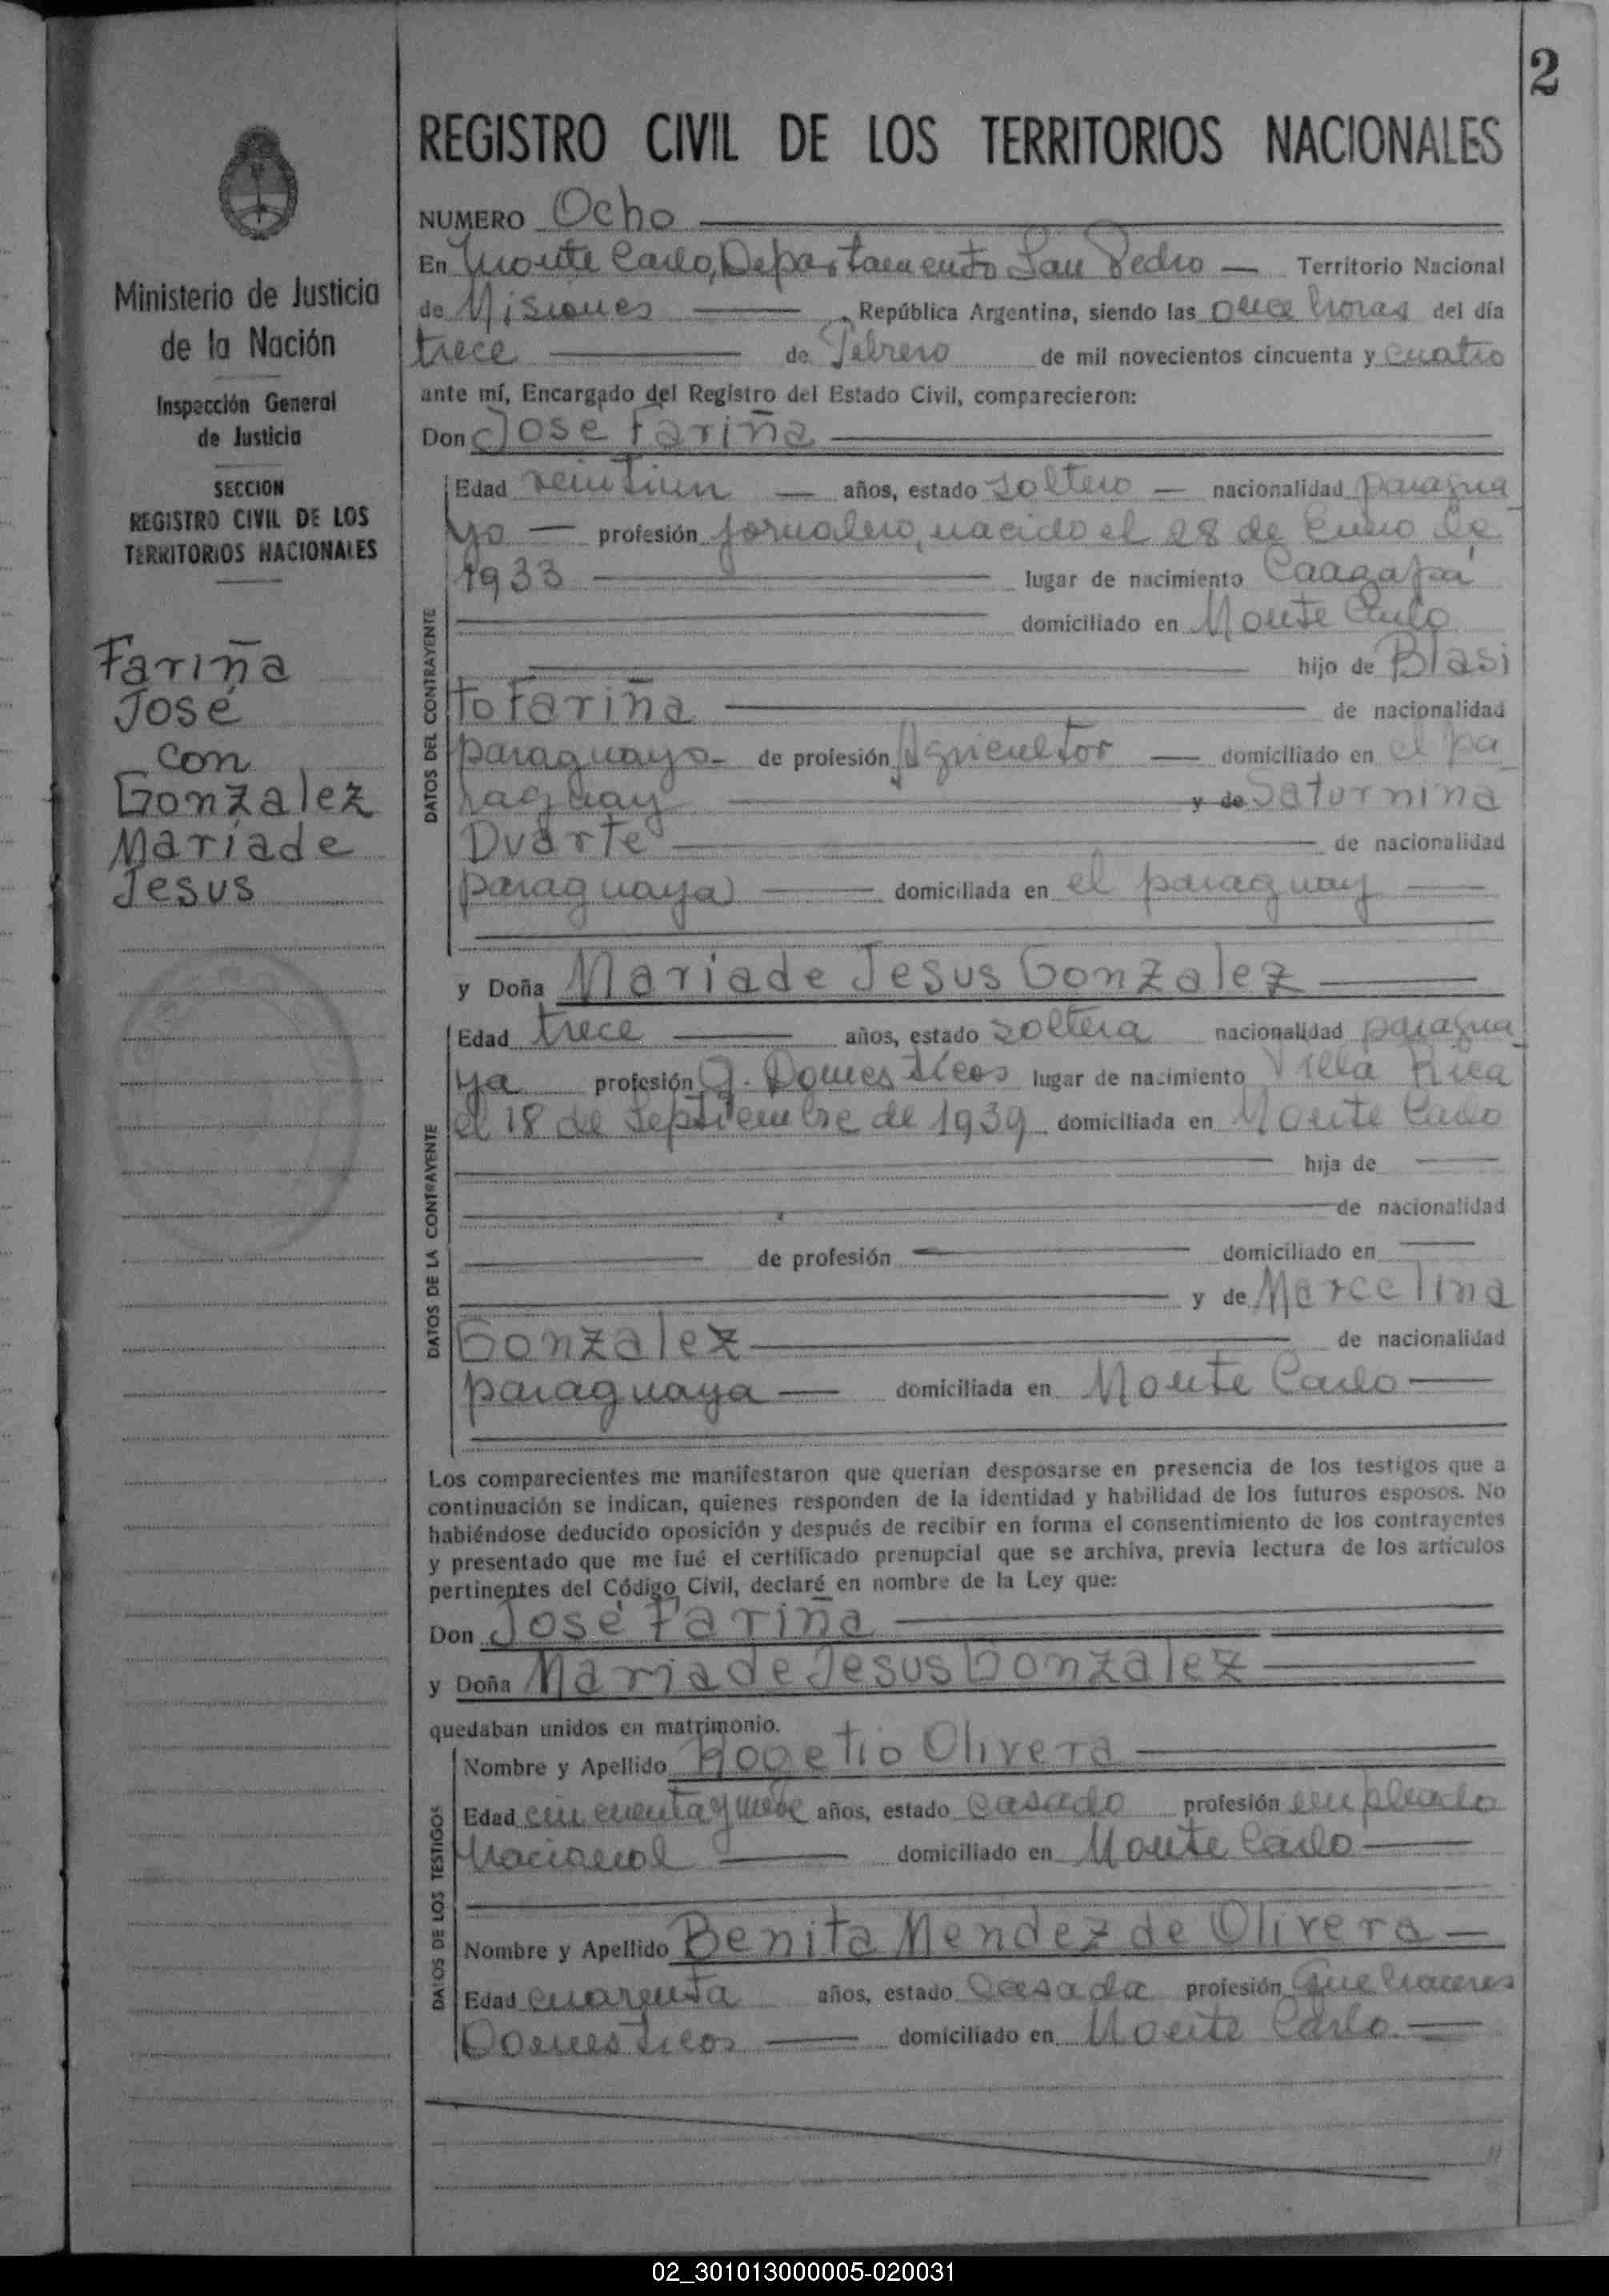 2
REGISTRO CIVIL DE LOS TERRITORIOS NACIONALES
Ministerio de Justicia
de la Nación
Inspección General
de Justicia
SECCION
REGISTRO CIVIL DE LOS
TERRITORIOS NACIONALES
Fariña
José
con
Gonzalez
María de
Jesus
NUMERO Ocho
En Monte Carlo, Departamento San Pedro — Territorio Nacional
de Misiones — , República Argentina, siendo las once horas del día
trece — de Febrero de mil novecientos cincuenta y cuatro
ante mí, Encargado del Registro del Estado Civil, comparecieron:
Don José Fariña
DATOS DEL CONTRAYENTE
Edad veintiun — años, estado soltero — nacionalidad paragua
yo — profesión jornalero, nacido el 28 de Enero de
1933 — lugar de nacimiento Caazapá
domiciliado en Monte Carlo
hijo de Blasi
to Fariña — de nacionalidad
paraguayo — de profesión Agricultor — domiciliado en el pa
raguay — y de Saturnina
Duarte — de nacionalidad
paraguaya — domiciliada en el paraguay —
y Doña Maria de Jesus Gonzalez —
DATOS DE LA CONTRAYENTE
Edad trece — años, estado soltera nacionalidad paragua
ya profesión Q. Domesticos lugar de nacimiento Villa Rica
el 18 de Septiembre de 1939 domiciliada en Monte Carlo
— hija de —
— de nacionalidad
— de profesión — domiciliado en —
— y de Marcelina
Gonzalez — de nacionalidad
paraguaya — domiciliada en Monte Carlo —
Los comparecientes me manifestaron que querían desposarse en presencia de los testigos que a
continuación se indican, quienes responden de la identidad y habilidad de los futuros esposos. No
habiéndose deducido oposición y después de recibir en forma el consentimiento de los contrayentes
y presentado que me fué el certificado prenupcial que se archiva, previa lectura de los artículos
pertinentes del Código Civil, declaré en nombre de la Ley que:
Don José Fariña —
y Doña Maria de Jesus Gonzalez —
quedaban unidos en matrimonio.
DATOS DE LOS TESTIGOS
Nombre y Apellido Rogelio Olivera —
Edad cincuenta y nueve años, estado casado profesión empleado
Nacional — domiciliado en Monte Carlo —
Nombre y Apellido Benita Mendez de Olivera —
Edad cuarenta años, estado Casada profesión Quehaceres
Domesticos — domiciliado en Monte Carlo —
02_301013000005-020031